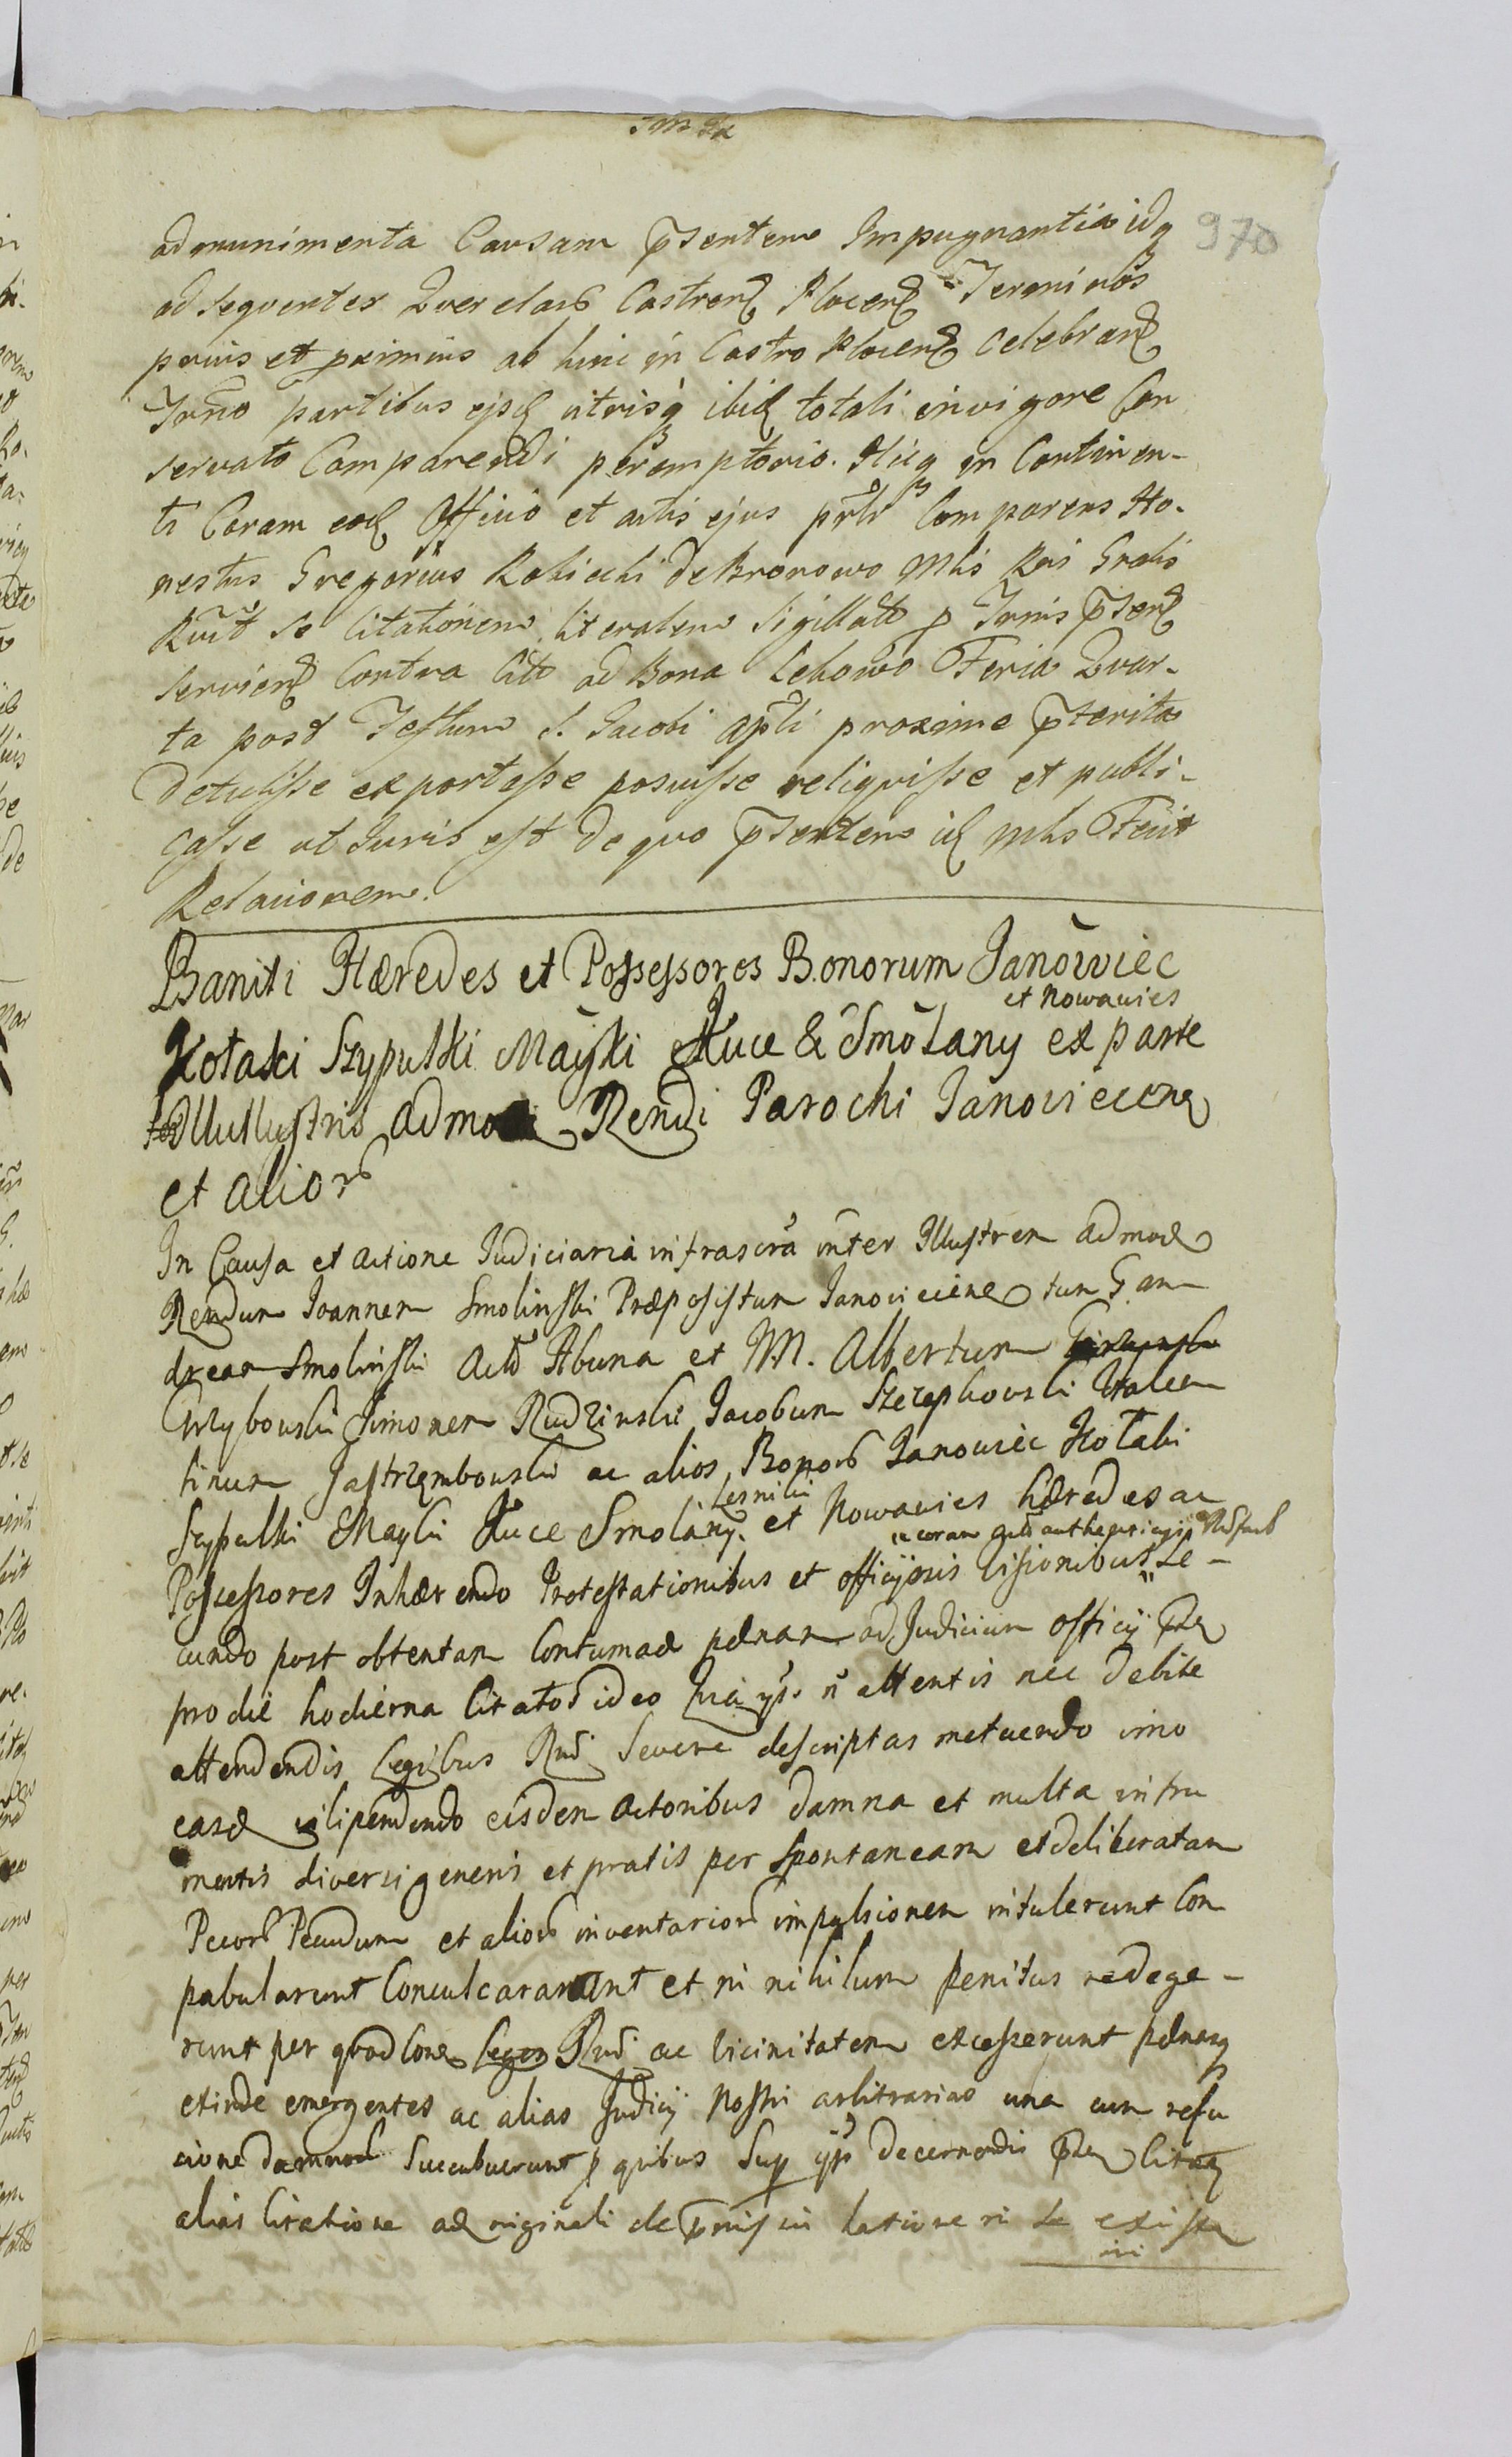 970
admunimenta Causam pstentem Impugnantia idq
ad sequentes Querelar Castren Plocen Terminos
prius et primius ab hinc in Castro Plocen Celebran
Trno partibus ejsd utrisq ibid totali in vigore Con
servato Comparendi peremptorio. Hicq in Continen-
ti Coram eod Officio et actis ejus Comparens Ho-
nestus Gregorius Rokicki de Bronowo Mlis Rni Gralis
se Citationem literalem Sigillat p Trnis psten
servien Contra Citt ad Bona Lekowo Feria Quar-
ta post Festum S. Jacobi Apli proxime pterita
detulisse exportasse posuisse reliquisse et publi-
casse ut Juris est de quo pstentem id Mlis Fecit
Relationem.
Baniti Hæredes et Possessores Bonorum Janowiec
et Nowawies
Kotaki Szypulki Mayki Kuce & Smolany ex parte
Illustris admod Rendi Parochi Janoviecen
et alior
In Causa et actione Judiciaria infrascra inter Illustrem admod
Rendum Joannem Smolinski Præpositum Janoviecien tum G. an
dream Smolinski Act Abuna et M. Albertum
Grzybouski Simonem Rudzinski Jacobum Szczepkouski Valen
tinum Jastrzembouski ac alios Bonor Janowiec Kotaki
Lesniki
Szypulki Mayki Kuce Smolany et Nowawies hæredes ac
coram
Possessores Inhærendo Protestationibus et officijosis visionibus Se-
cundo post obtentam Contumad pænam ad Judicium officij pte
pro die hodierna Citatos ideo quia ypsi n attentis nec debite
attendendis Legibus Rni Severe descriptas metuendo imo
easd vilipendendo eisdem actoribus damna et multa in fru
mentis diversi generis et pratis per spontaneam et deliberatam
Pecor Pecudum et alior inventarior impulsionem intulerunt Con
pabularunt Conculcararunt et in nihilum penitus redege-
runt per quod Leges Rni ac vicinitatem excesserunt pænasq
exinde emergentes ac alias Judicij Nostri arbitrarias una cum refu
sione damnor Succubuerunt p quibus Sup yps decernendis pte Citaq
alias Citatione originali latione in se